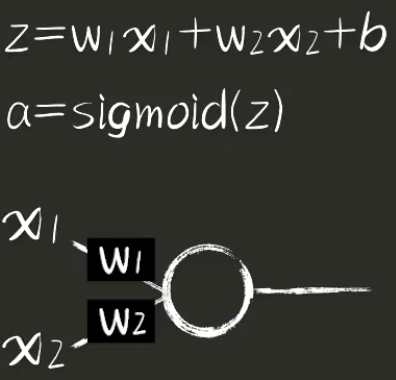 z=w1x1+w2x2+b
a=sigmoid(z)
x1
w1
w2
x2